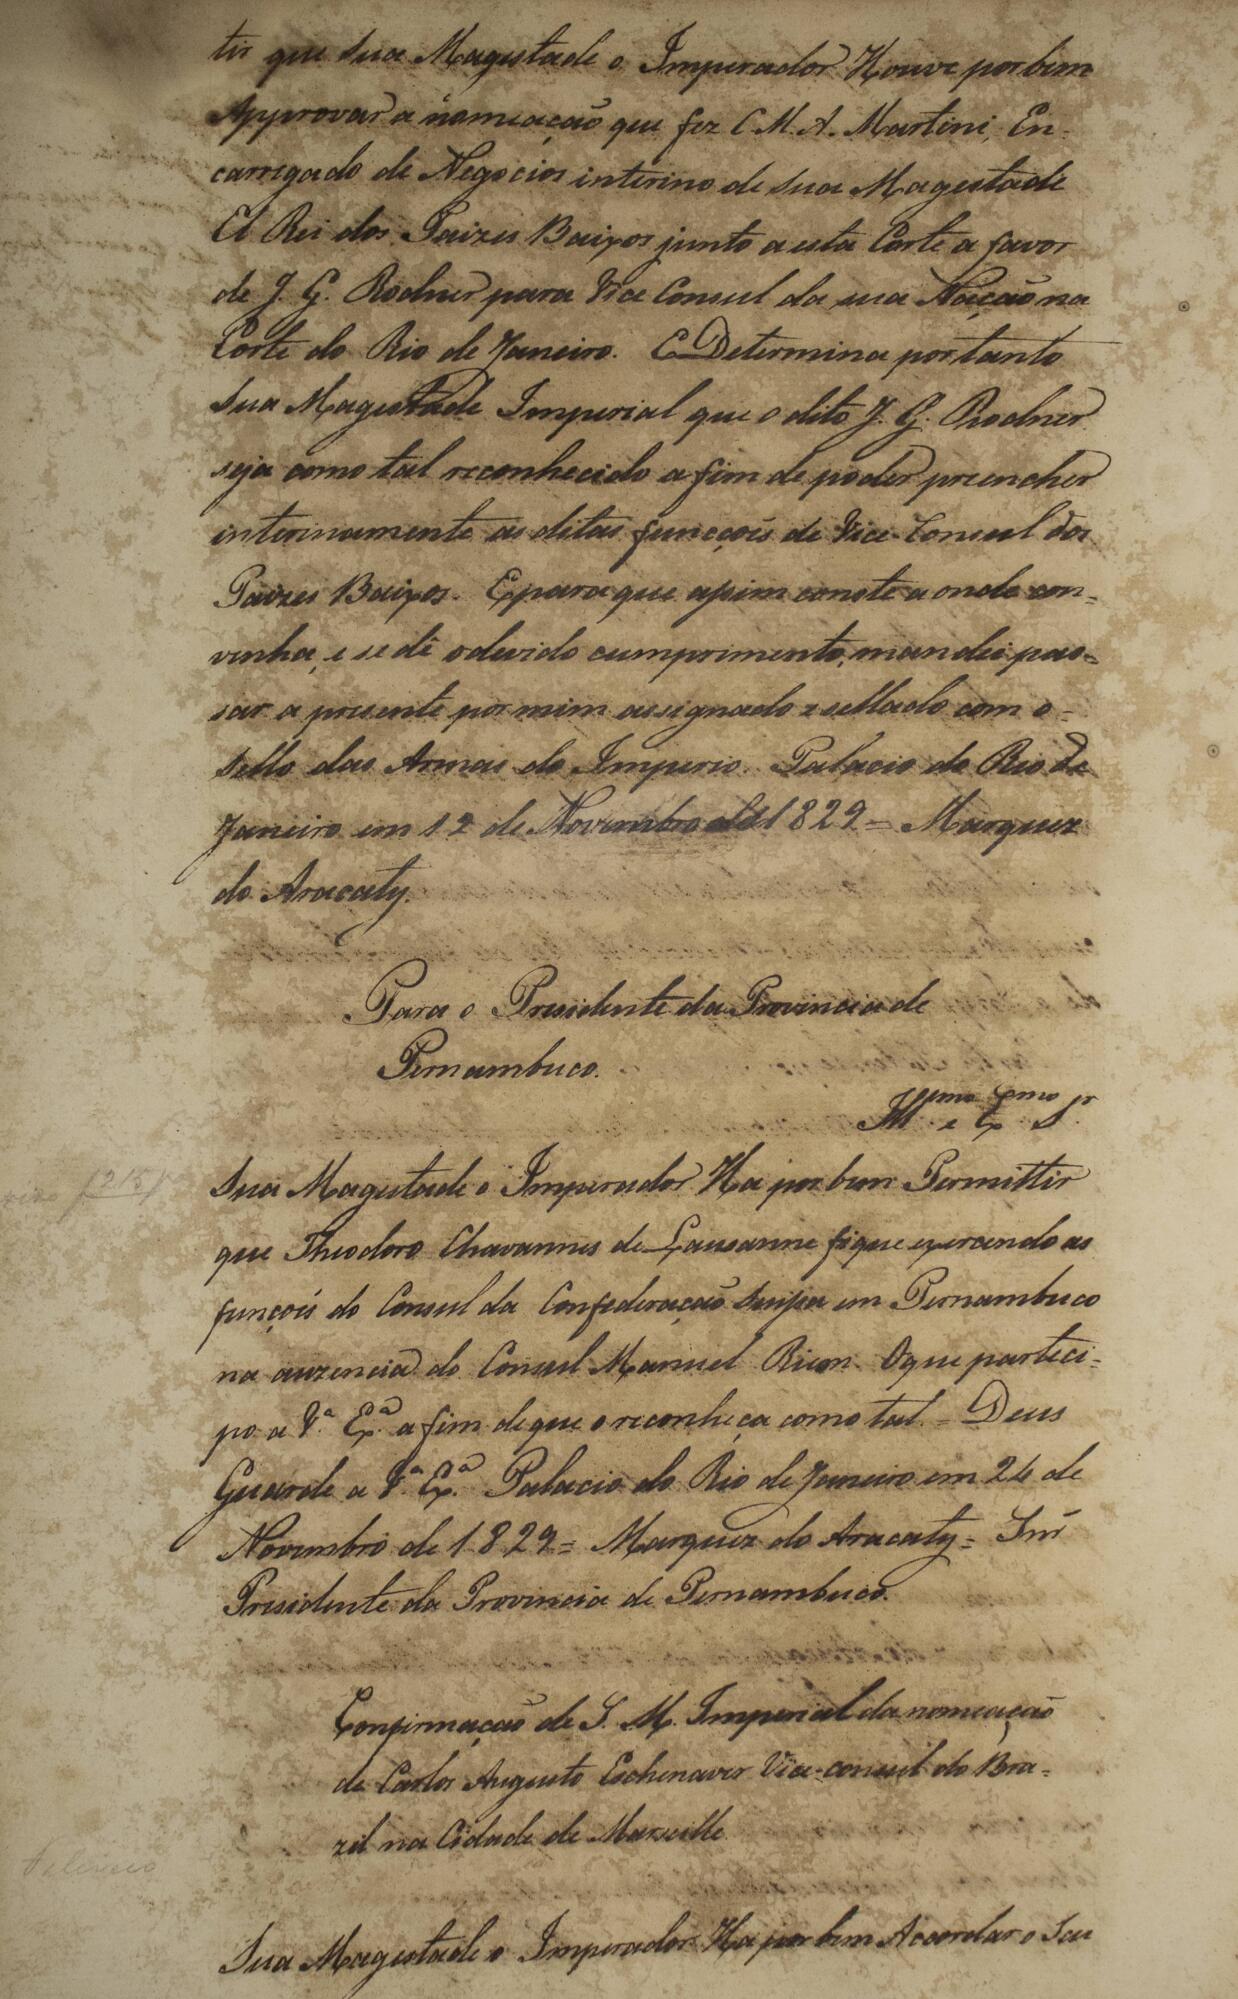 tir que Sua Magestade o Imperador Houve por bem
Approvar a nomeação que fez C. M. A. Martini, En-
carregado de Negocios interino de Sua Magestade
El Rei dos Paizes Baixos junto a esta Corte a favor
de J. G. Rodner para Vice Consul da sua Nação na
Corte do Rio de Janeiro. E Determina portanto
Sua Magestade Imperial que o dito J. G. Rodner
seja como tal reconhecido a fim de poder preencher
interinamente as ditas funcções de Vice-Consul dos
Paizes Baixos. E para que assim conste a onde con-
venha, e se dê o devido cumprimento, mandei pas-
sar a presente por mim assignado e sellado com o
Sello das Armas do Imperio. Palacio do Rio de
Janeiro em 12 de Novembro de 1829 = Marquez
do Aracaty.
Para o Presidente da Provincia de
Pernambuco.
Illmo e Exmo Sr.
Sua Magestade o Imperador Ha por bem Permittir
que Theodoro Chavannes de Lausanne fique exercendo as
funçoĩs do Consul da Confederação Suissa em Pernambuco
na auzencia do Consul Manuel Rion. O que parteci-
po a Vª. Exª. a fim de que o reconheça como tal. = Deus
Guarde a Vª. Exª. Palacio do Rio de Janeiro em 24 de
Novembro de 1829 = Marquez do Aracaty = Snr
Presidente da Provincia de Pernambuco.
Confirmação de S. M. Imperial da nomeação
de Carlos Augusto Eschenaver Vice-consul do Bra-
zil na Cidade de Marseille
Sua Magestade o Imperador Ha por bem Accordar o Seu